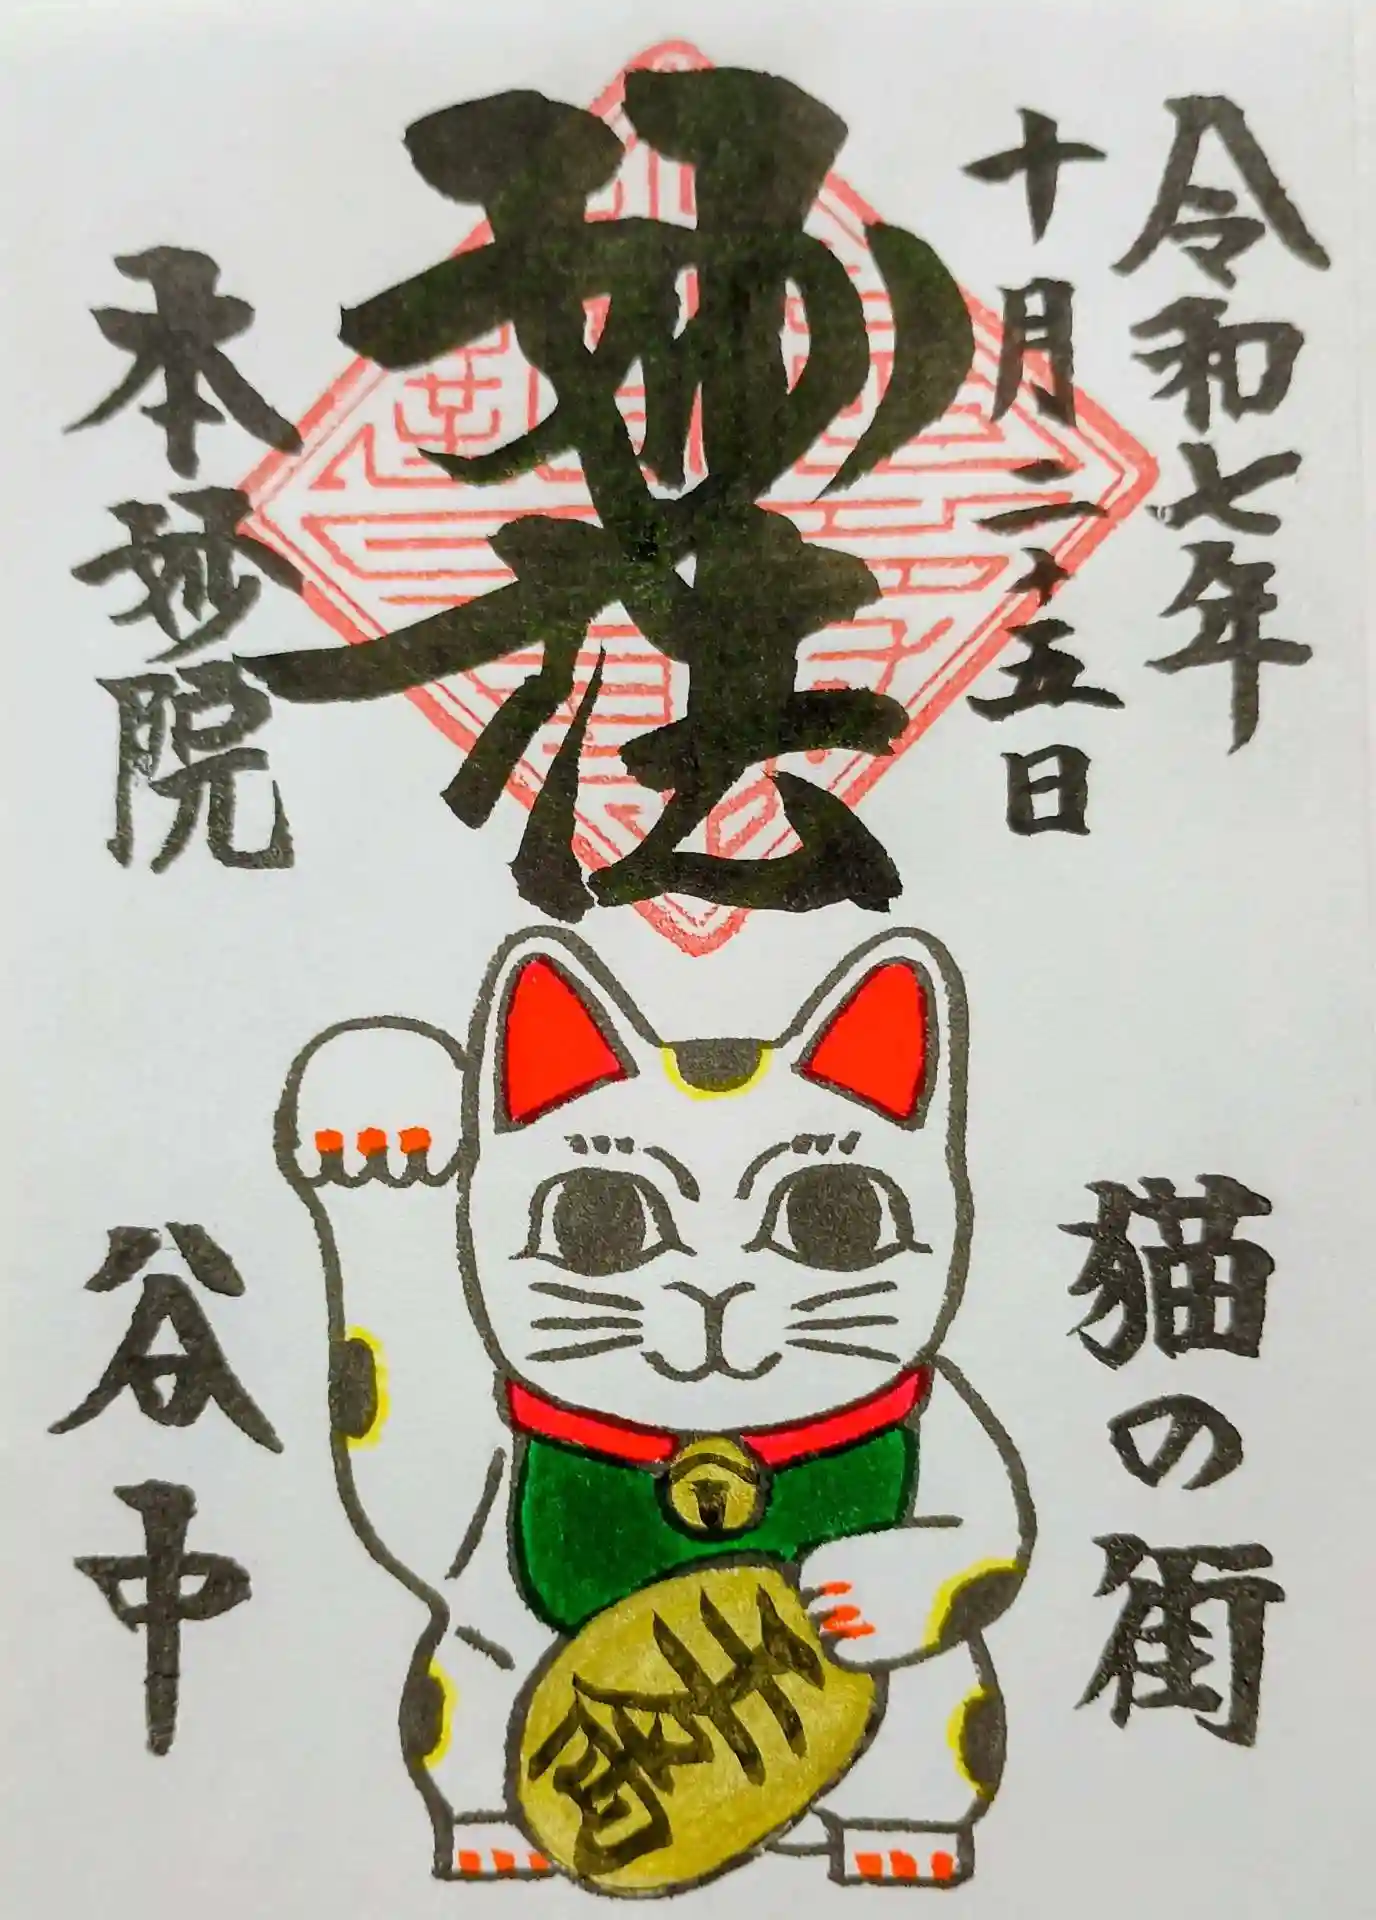 令和七年
十月二十五日
妙法
本妙院
猫の街
谷中